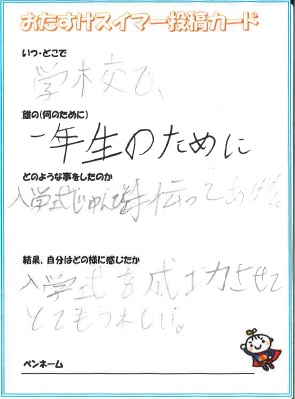 おたすけスイマー投稿カード
いつ・どこで
学校で、
誰の(何のために)
一年生のために
どのような事をしたのか
入学式じゅんび手伝ってあげた。
結果、自分はどの様に感じたか
入学式を成功させて
とてもうれしい。
ペンネーム